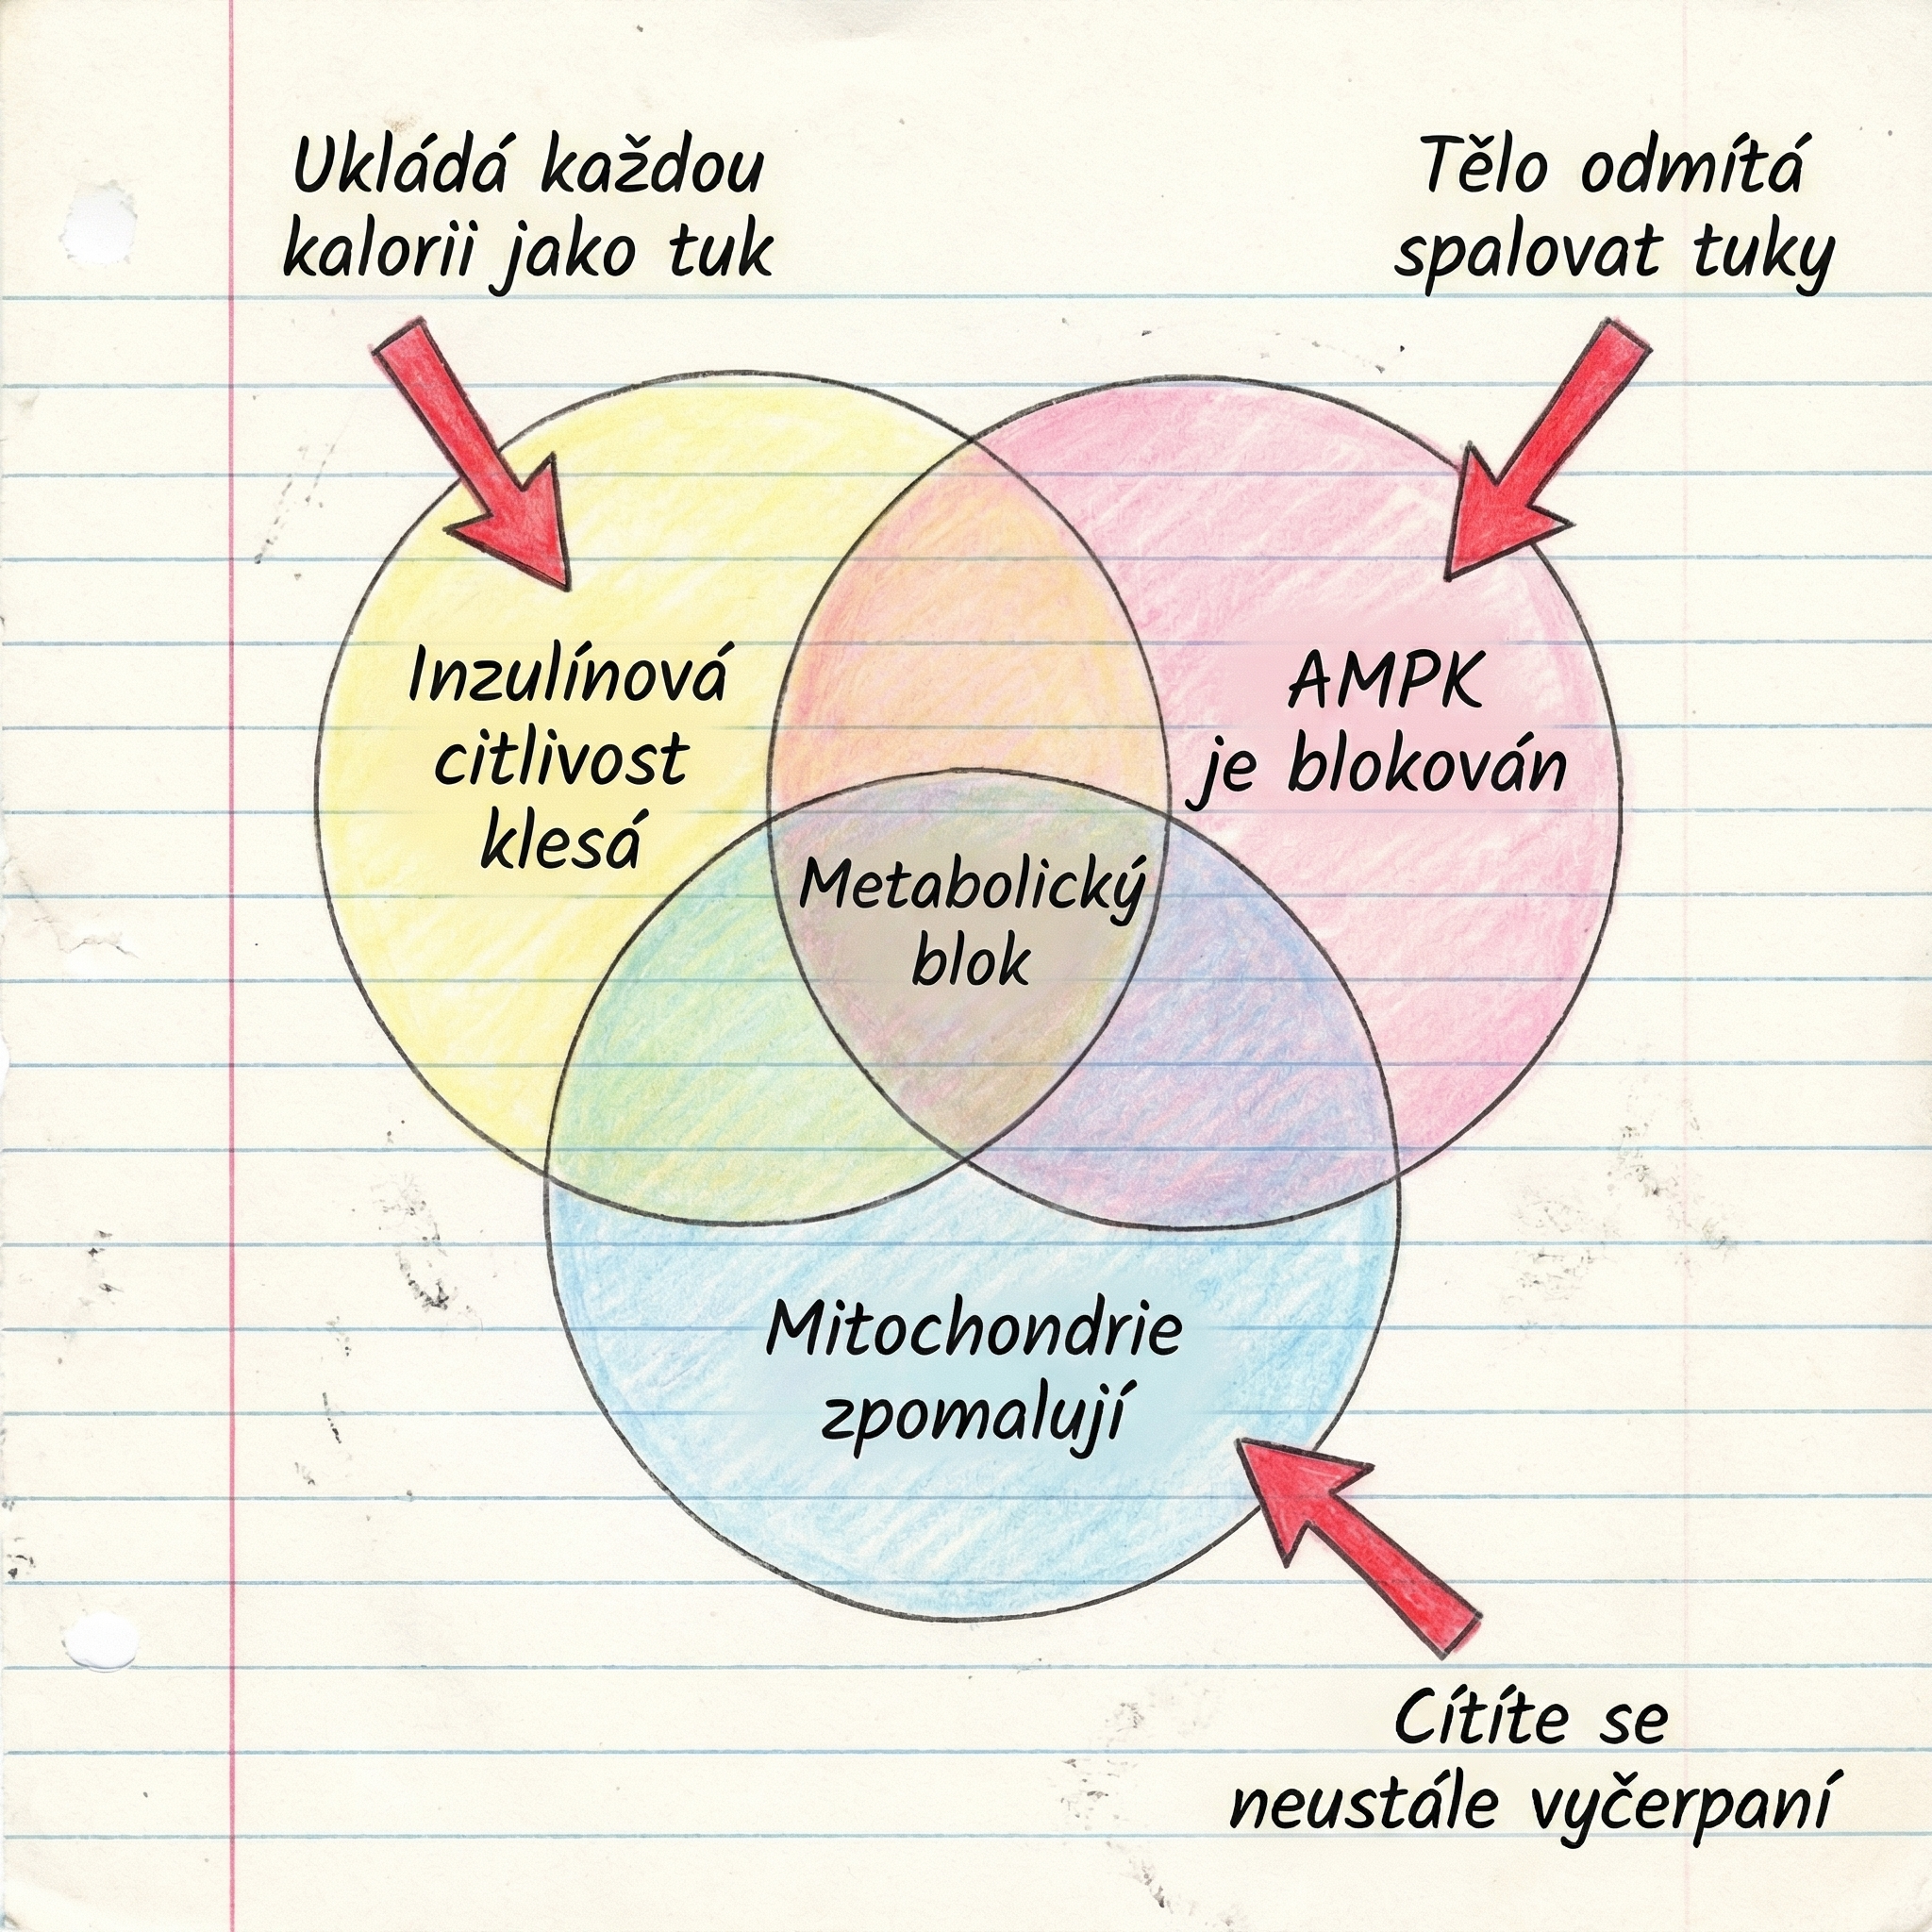 Ukládá každou
kalorii jako tuk
Tělo odmítá
spalovat tuky
Inzulínová
citlivost
klesá
AMPK
je blokován
Metabolický
blok
Mitochondrie
zpomalují
Cítíte se
neustále vyčerpaní